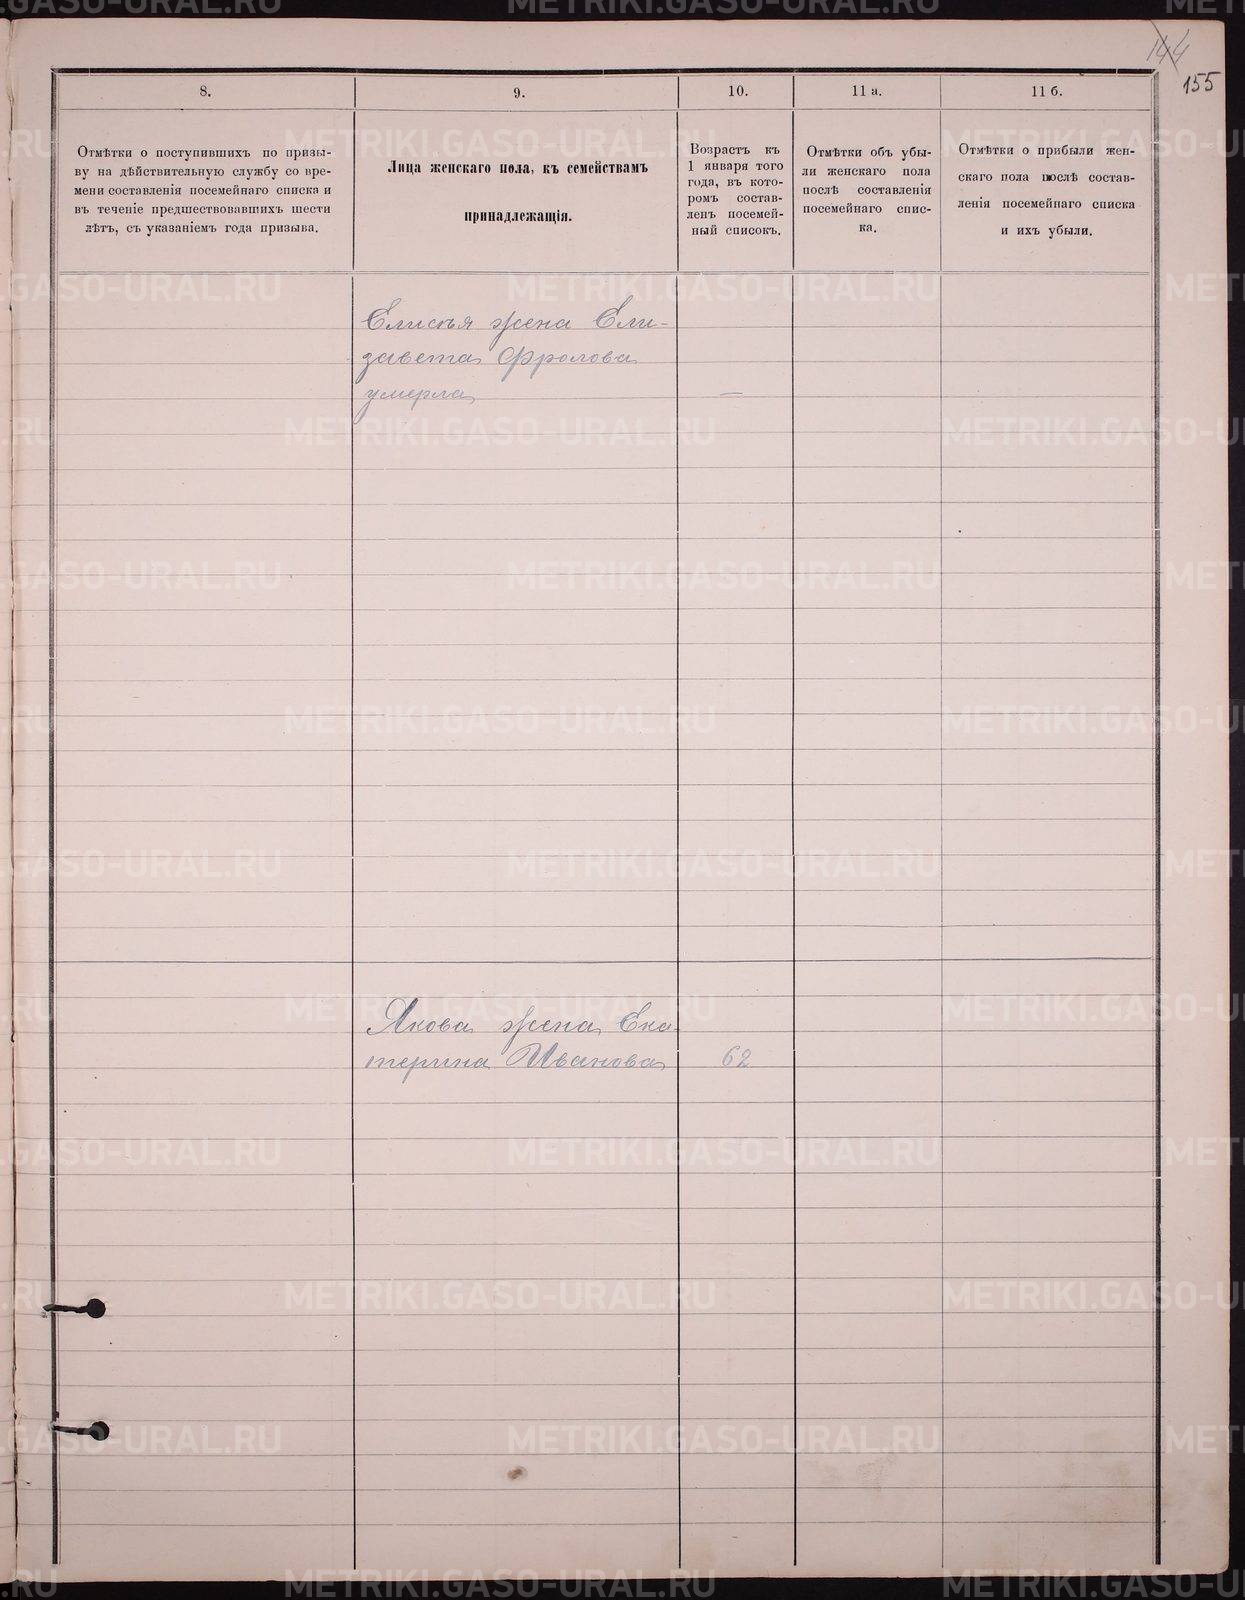 144
155
8.
Отмѣтки о поступившихъ по призы-
ву на дѣйствительную службу со вре-
мени составленія посемейнаго списка и
въ теченіе предшествовавшихъ шести
лѣтъ, съ указаніемъ года призыва.
9.
Лица женскаго пола, къ семействамъ
принадлежащія.
10.
Возрастъ къ
1 января того
года, въ кото-
ромъ состав-
ленъ посемей-
ный списокъ.
11 а.
Отмѣтки объ убы-
ли женскаго пола
послѣ составленія
посемейнаго спис-
ка.
11 б.
Отмѣтки о прибыли жен-
скаго пола послѣ состав-
ленія посемейнаго списка
и ихъ убыли.
Елисѣя жена Ели-
завета Фролова
умерла —
Якова жена Ека-
терина Иванова 62
METRIKI.GASO-URAL.RU